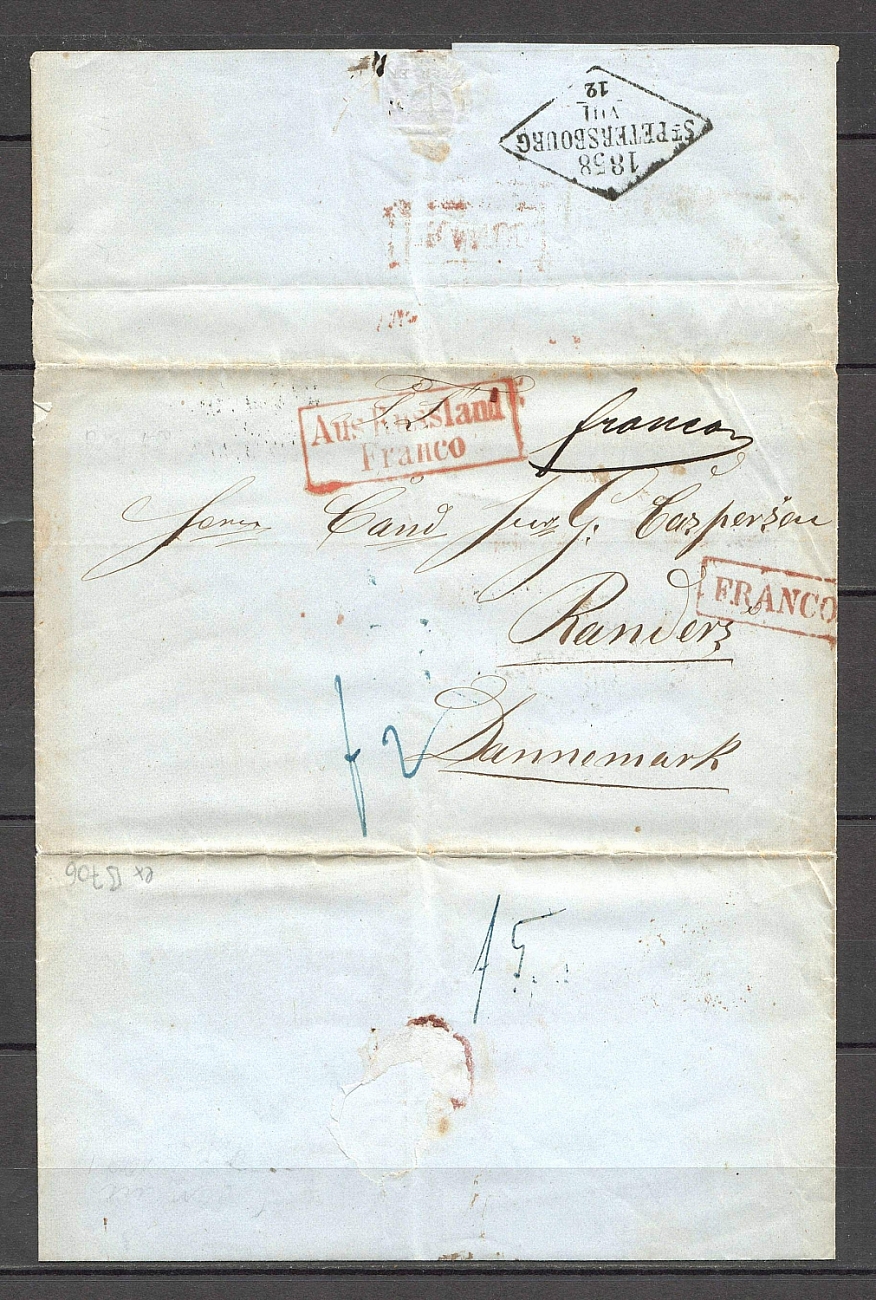 1858
ST PETERSBOURG
VIII
12
Aus Russland
Franco
franco
Herrn Cand jur G. Caspersen
FRANCO
Randers
f2
Dannemark
f5